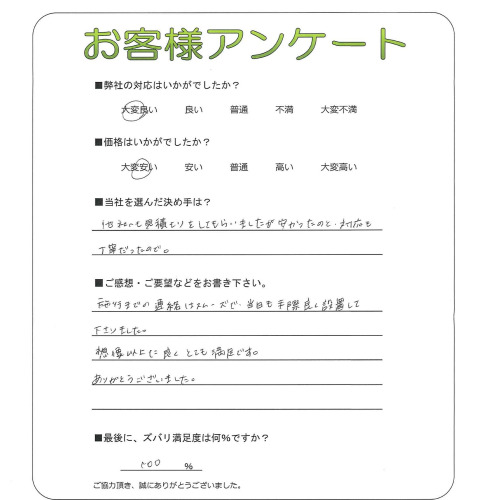 お客様アンケート
■弊社の対応はいかがでしたか?
大変良い 良い 普通 不満 大変不満
■価格はいかがでしたか?
大変安い 安い 普通 高い 大変高い
■当社を選んだ決め手は?
他社にも見積もりをしてもらいましたが安かったのと、対応も
丁寧だったので。
■ご感想・ご要望などをお書き下さい。
施行までの連絡はスムーズで、当日も手際良く設置して
下さいました。
想像以上に良く とても満足です。
ありがとうございました。
■最後に、ズバリ満足度は何%ですか?
100 %
ご協力頂き、誠にありがとうございました。